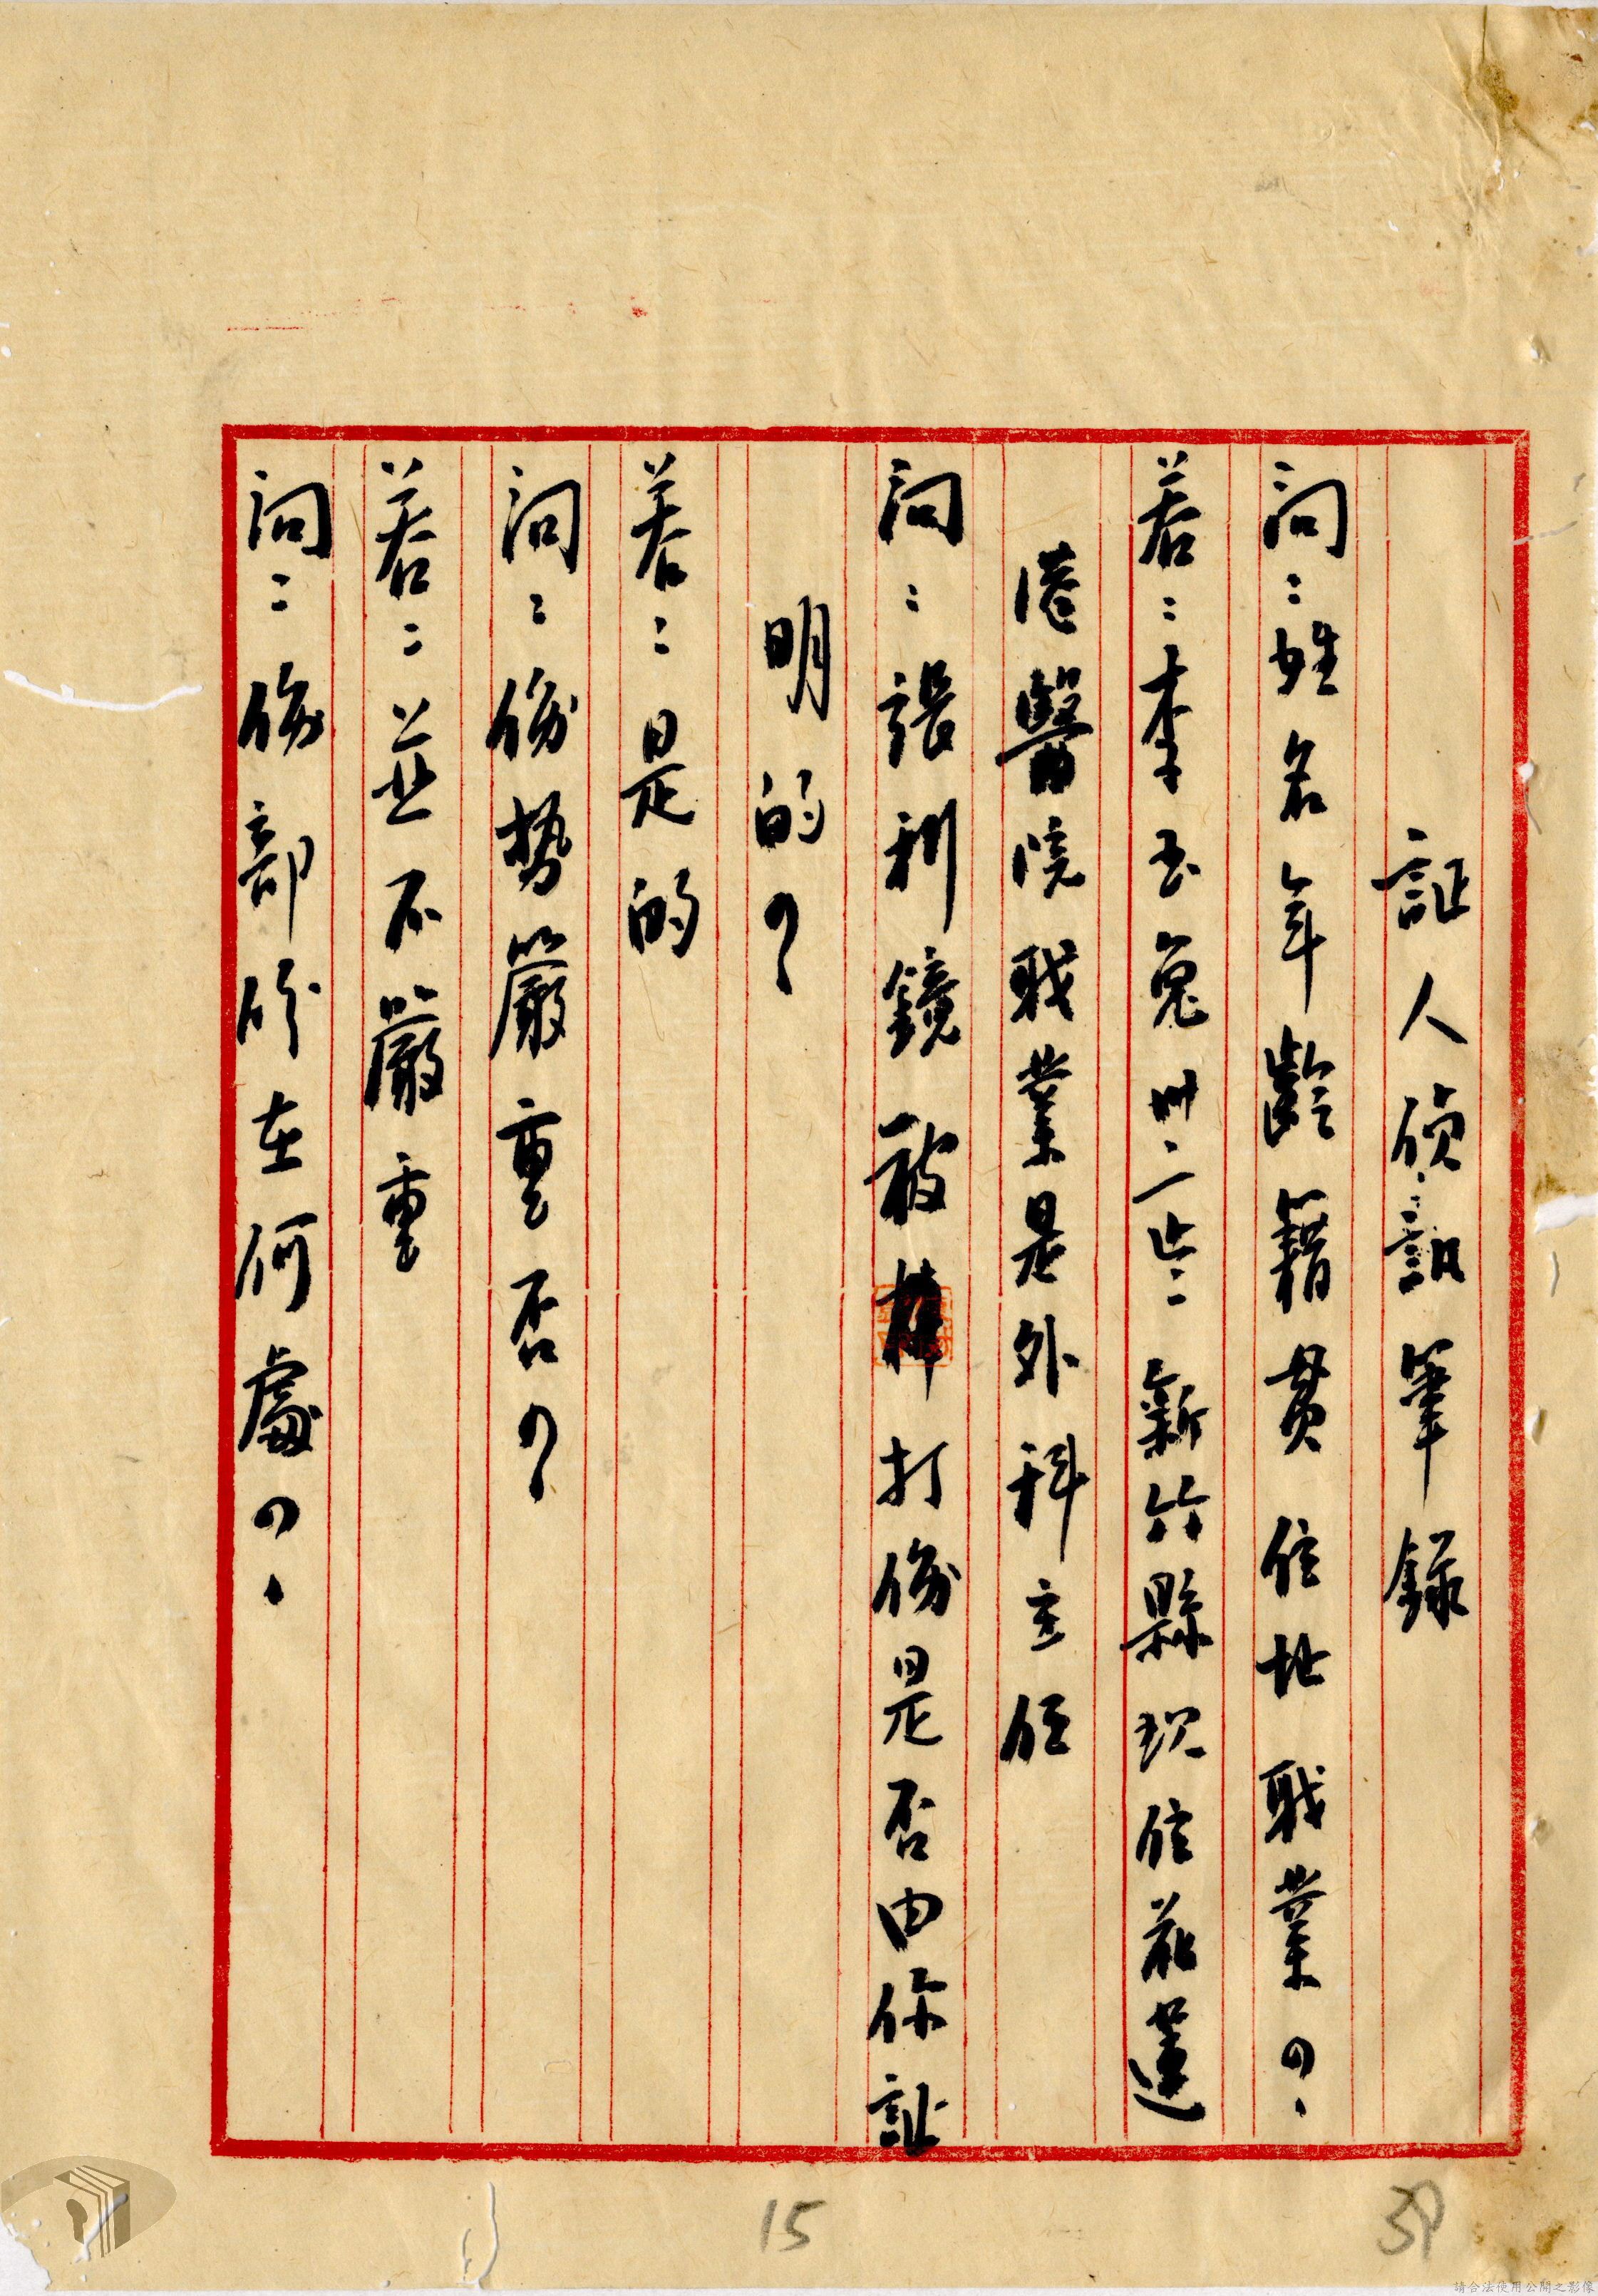 証人偵訊筆錄
問：姓名年齡籍貫住址職業？
答：李玉兔卅二歲 新竹縣現住花蓮
港醫院職業是外科主任
問：張利鏡被棒打傷是否由你証
明的？
答：是的
問：傷勢嚴重否？
答：並不嚴重
問：傷部份在何處？
15
39
請合法使用公開之影像